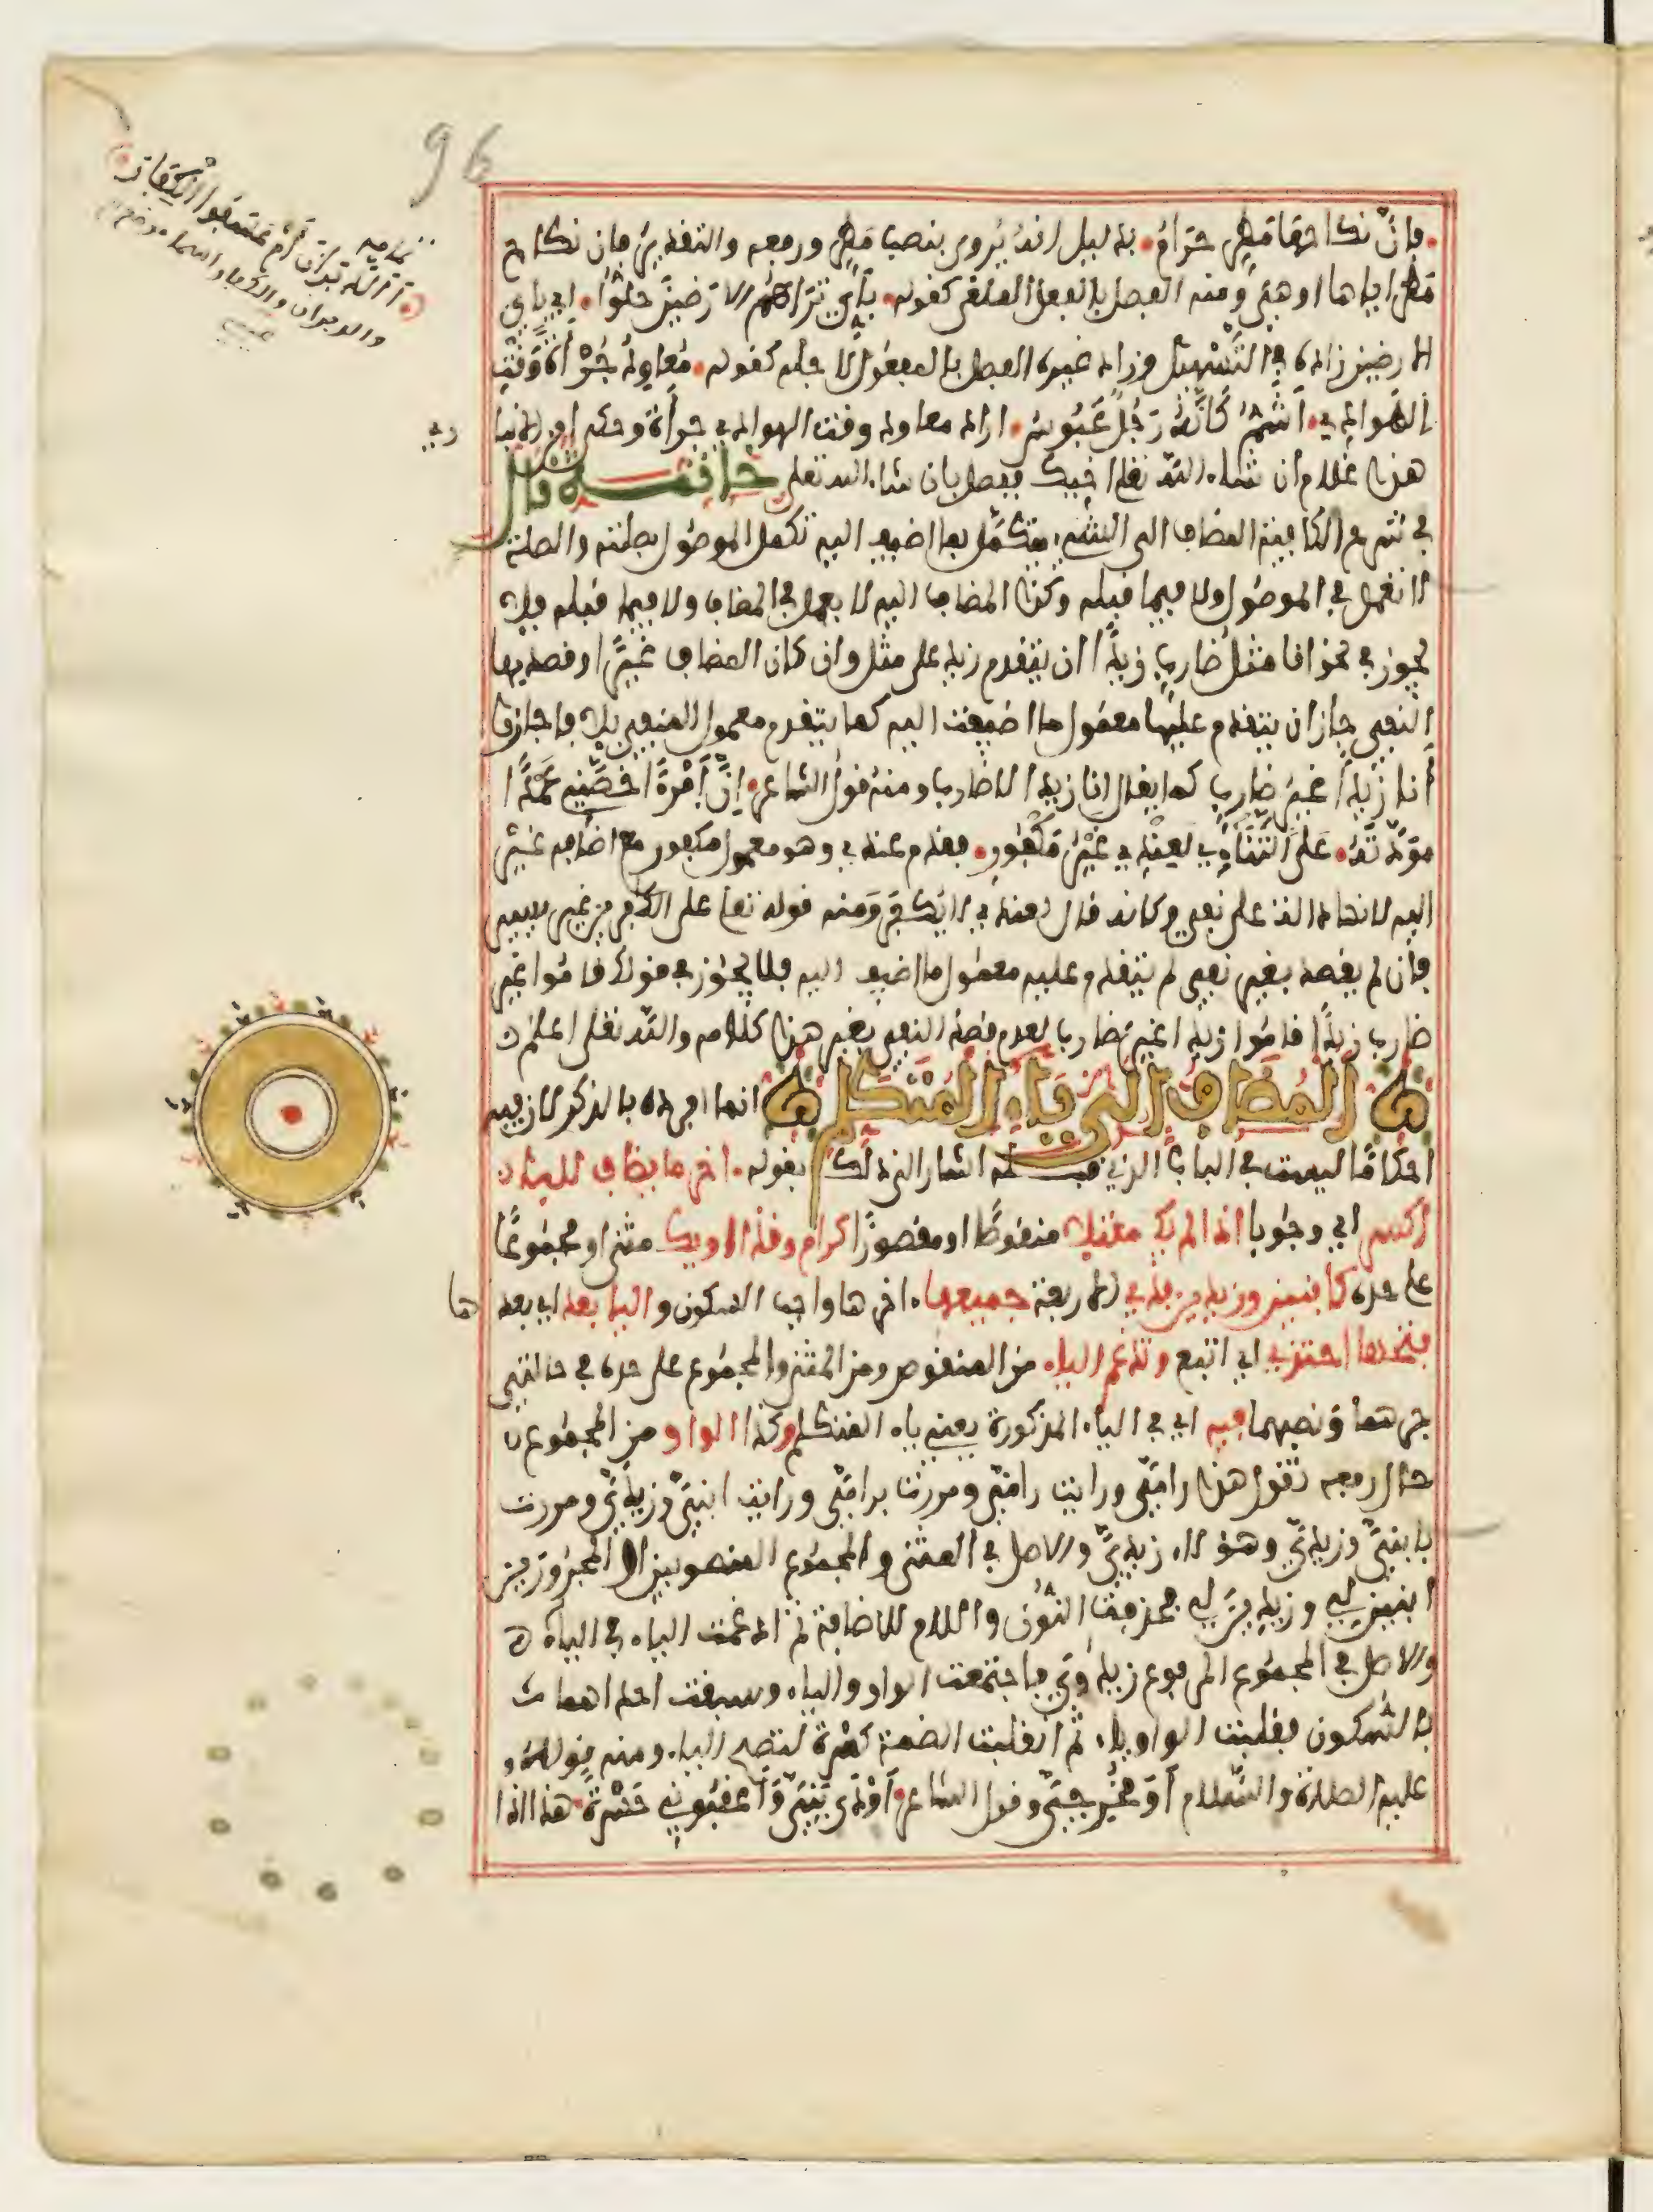 96
فإن نكاحها مطر حرام بدليل انه يروى بنصب مطر ورفعه والتقدير فإن نكاح
مطر اياها او هي ومنه الفصل بالفعل الملغى كقوله بأي تراهم الارضين حلوا اي باي
الارضين زاده في التسهيل وزاد غيره الفصل بالمفعول لاجله كقوله معاود جرأة وقت
الهوادي اشم كانه رجل عبوس اراد معاود وقت الهوادي جرأة وحكى ابن الانباري
هذا غلام ان شاء الله تعلى اخيك ففصل بان شاء الله تعلى خاتمة قال
في شرح الكافية المضاف الى الشيء يتكمل بما اضيف اليه تكمل الموصول بصلته والصلة
لا تعمل في الموصول ولا فيما قبله وكذا المضاف اليه لا يعمل في المضاف ولا فيما قبله فلا
يجوز في نحو انا مثل ضارب زيدا ان يتقدم زيد على مثل وان كان المضاف غيرا وقصد بها
النفي جاز ان يتقدم عليها معمول ما اضيفت اليه كما يتقدم معمول المنفي بلا فاجازوا
أنا زيدا غير ضارب كما يقال انا زيدا لا ضارب ومنه قول الشاعر إن امرءا خصني عمدا
مودته على التنائي لعندي غير مكفور فقدم عندي وهو معمول مكفور مع اضافة غير
اليه لانها دالة على نفي وكانه قال لعندي لا يكفر ومنه قوله تعلى على الكافرين غير يسير
فإن لم يقصد بغير نفي لم يتقدم عليه معمول ما اضيف اليه فلا يجوز في قولك قاموا غير
ضارب زيدا قاموا زيدا غير ضارب لعدم قصد النفي بغير هذا كلامه والله تعلى اعلم
المضاف الى ياء المتكلم انما افرده بالذكر لان فيه
احكاما ليست في الباب الذي قبله اشار الى ذلك بقوله اخر ما يضاف لليا
اكسر اي وجوبا اذا لم يك معتلا منقوصا او مقصورا كرام وقذا او يك مثنى او مجموعا
على حده كابنين وزيدين فذي الاربعة جميعها اخرها واجب السكون واليا بعد اي بعدها
فتحها احتذي اي اتبع وتدغم الياء من المنقوص ومن المثنى والمجموع على حده في حالتي
جرهما ونصبهما فيه اي في الياء المذكورة يعني ياء المتكلم وكذا الواو من المجموع
حال رفعه تقول هذا رامي ورايت رامي ومررت برامي ورايت ابني وزيدي ومررت
بابني وزيدي وهؤلاء زيدي والاصل في المثنى والمجموع المنصوبين او المجرورين
ابنين لي وزيدين لي فحذفت النون واللام للاضافة ثم ادغمت الياء في الياء
والاصل في المجموع المرفوع زيدوي فاجتمعت الواو والياء وسبقت احداهما
بالسكون فقلبت الواو ياء ثم انقلبت الضمة كسرة لتصح الياء ومنه قوله
عليه الصلاة والسلام أو مخرجي وقول الشاعر أودى بني وأعقبوني حسرة هذا اذا